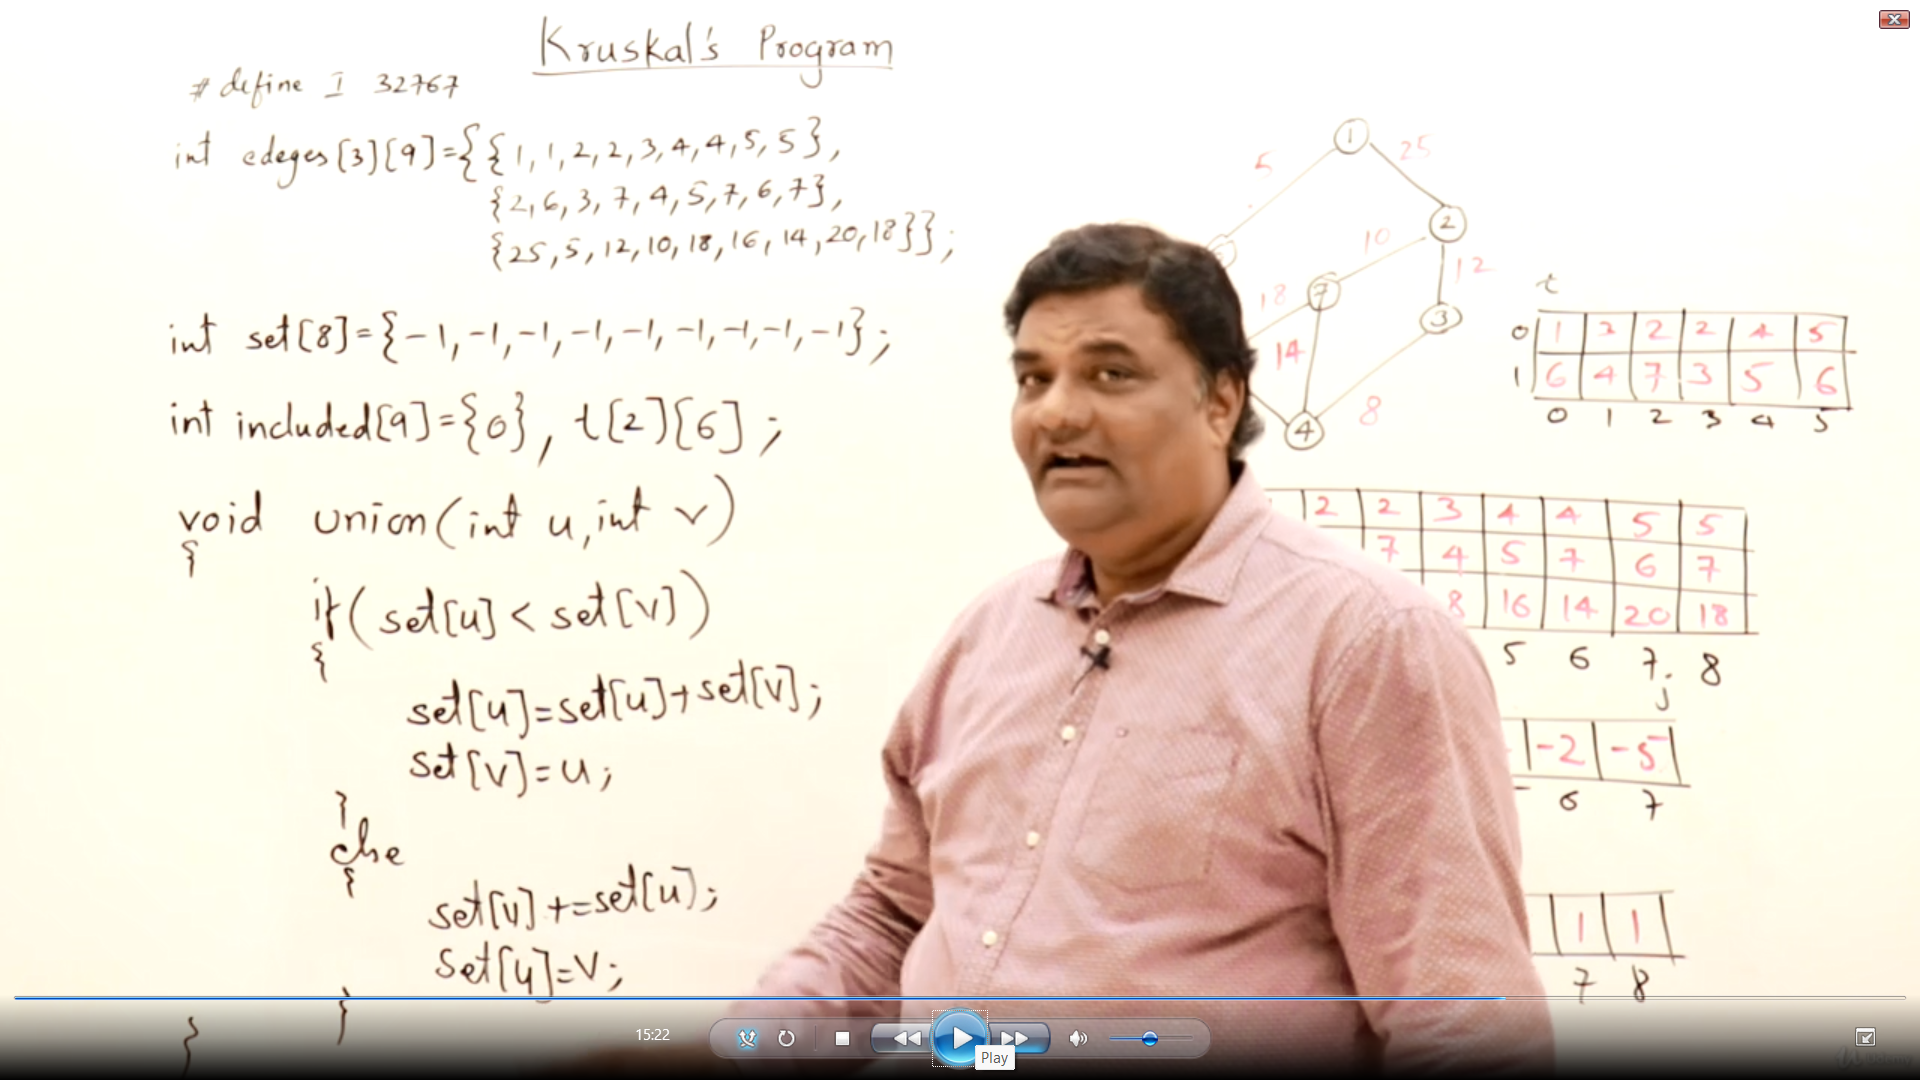 Kruskal's Program
# define I 32767
int edeges[3][9]={{1,1,2,2,3,4,4,5,5},
{2,6,3,7,4,5,7,6,7},
{25,5,12,10,18,16,14,20,18}};
int set[8]={-1,-1,-1,-1,-1,-1,-1,-1,-1};
int included[9]={0}, t[2][6];
void union(int u,int v)
{
if(set[u]<set[v])
{
set[u]=set[u]+set[v];
set[v]=u;
}
else
{
set[v]+=set[u];
set[u]=v;
}
}
1
5
25
2
10
12
18
7
3
14
8
4
t
0 1 3 2 2 4 5
1 6 4 7 3 5 6
0 1 2 3 4 5
2 2 3 4 4 5 5
7 4 5 7 6 7
8 16 14 20 18
5 6 7 8
j
-2 -5
6 7
1 1
7 8
15:22
Play